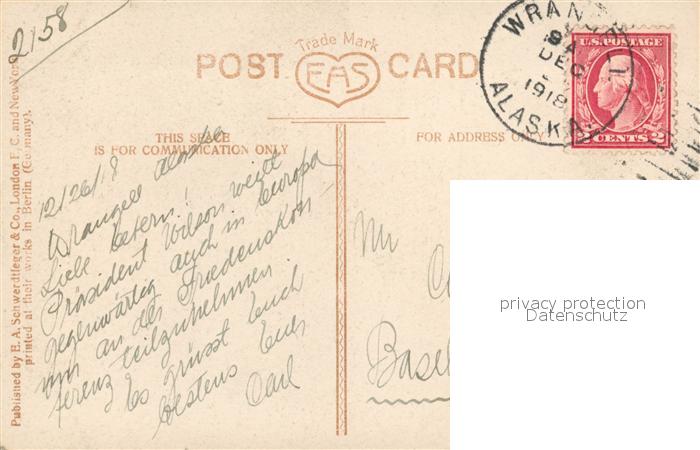 2158
Trade Mark
POST EAS CARD
THIS SPACE
IS FOR COMMUNICATION ONLY
FOR ADDRESS ONLY
WRAN
9 A
DEC
1918
ALASKA
U.S. POSTAGE
2 CENTS 2
Published by E. A. Schwerdtfeger & Co., London E. C. and New York
printed at their works in Berlin (Germany).
12/26/18
Wrangell Alaska
Liebe Eltern!
Präsident Wilson weilt
gegenwärtig auch in Europa
um an der Friedenskon-
ferenz teilzunehmen.
Es grüsst Euch
bestens Euer
Carl
Mr
Basel
privacy protection
Datenschutz